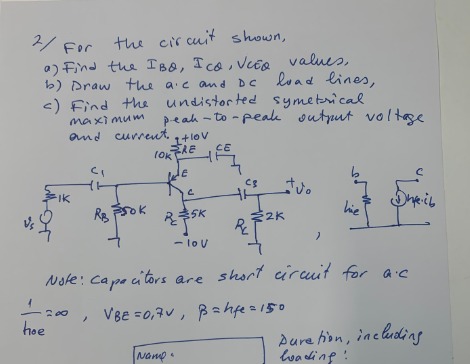 2/ For the circuit shown,
a) Find the IBQ, ICQ, VCEQ values,
b) Draw the a.c and DC load lines,
c) Find the undistorted symetrical
maximum peak-to-peak output voltage
and current.
+10V
10K RE CE
E
C1
C
C3
+
Vo
1K
Vs
RB 50K
RC 5K
RL 2K
-10V
,
b
c
hie
hfe.ib
Note: Capacitors are short circuit for a.c
1/hoe = ∞, VBE = 0,7V, β = hfe = 150
Name:
Duration, including
loading: